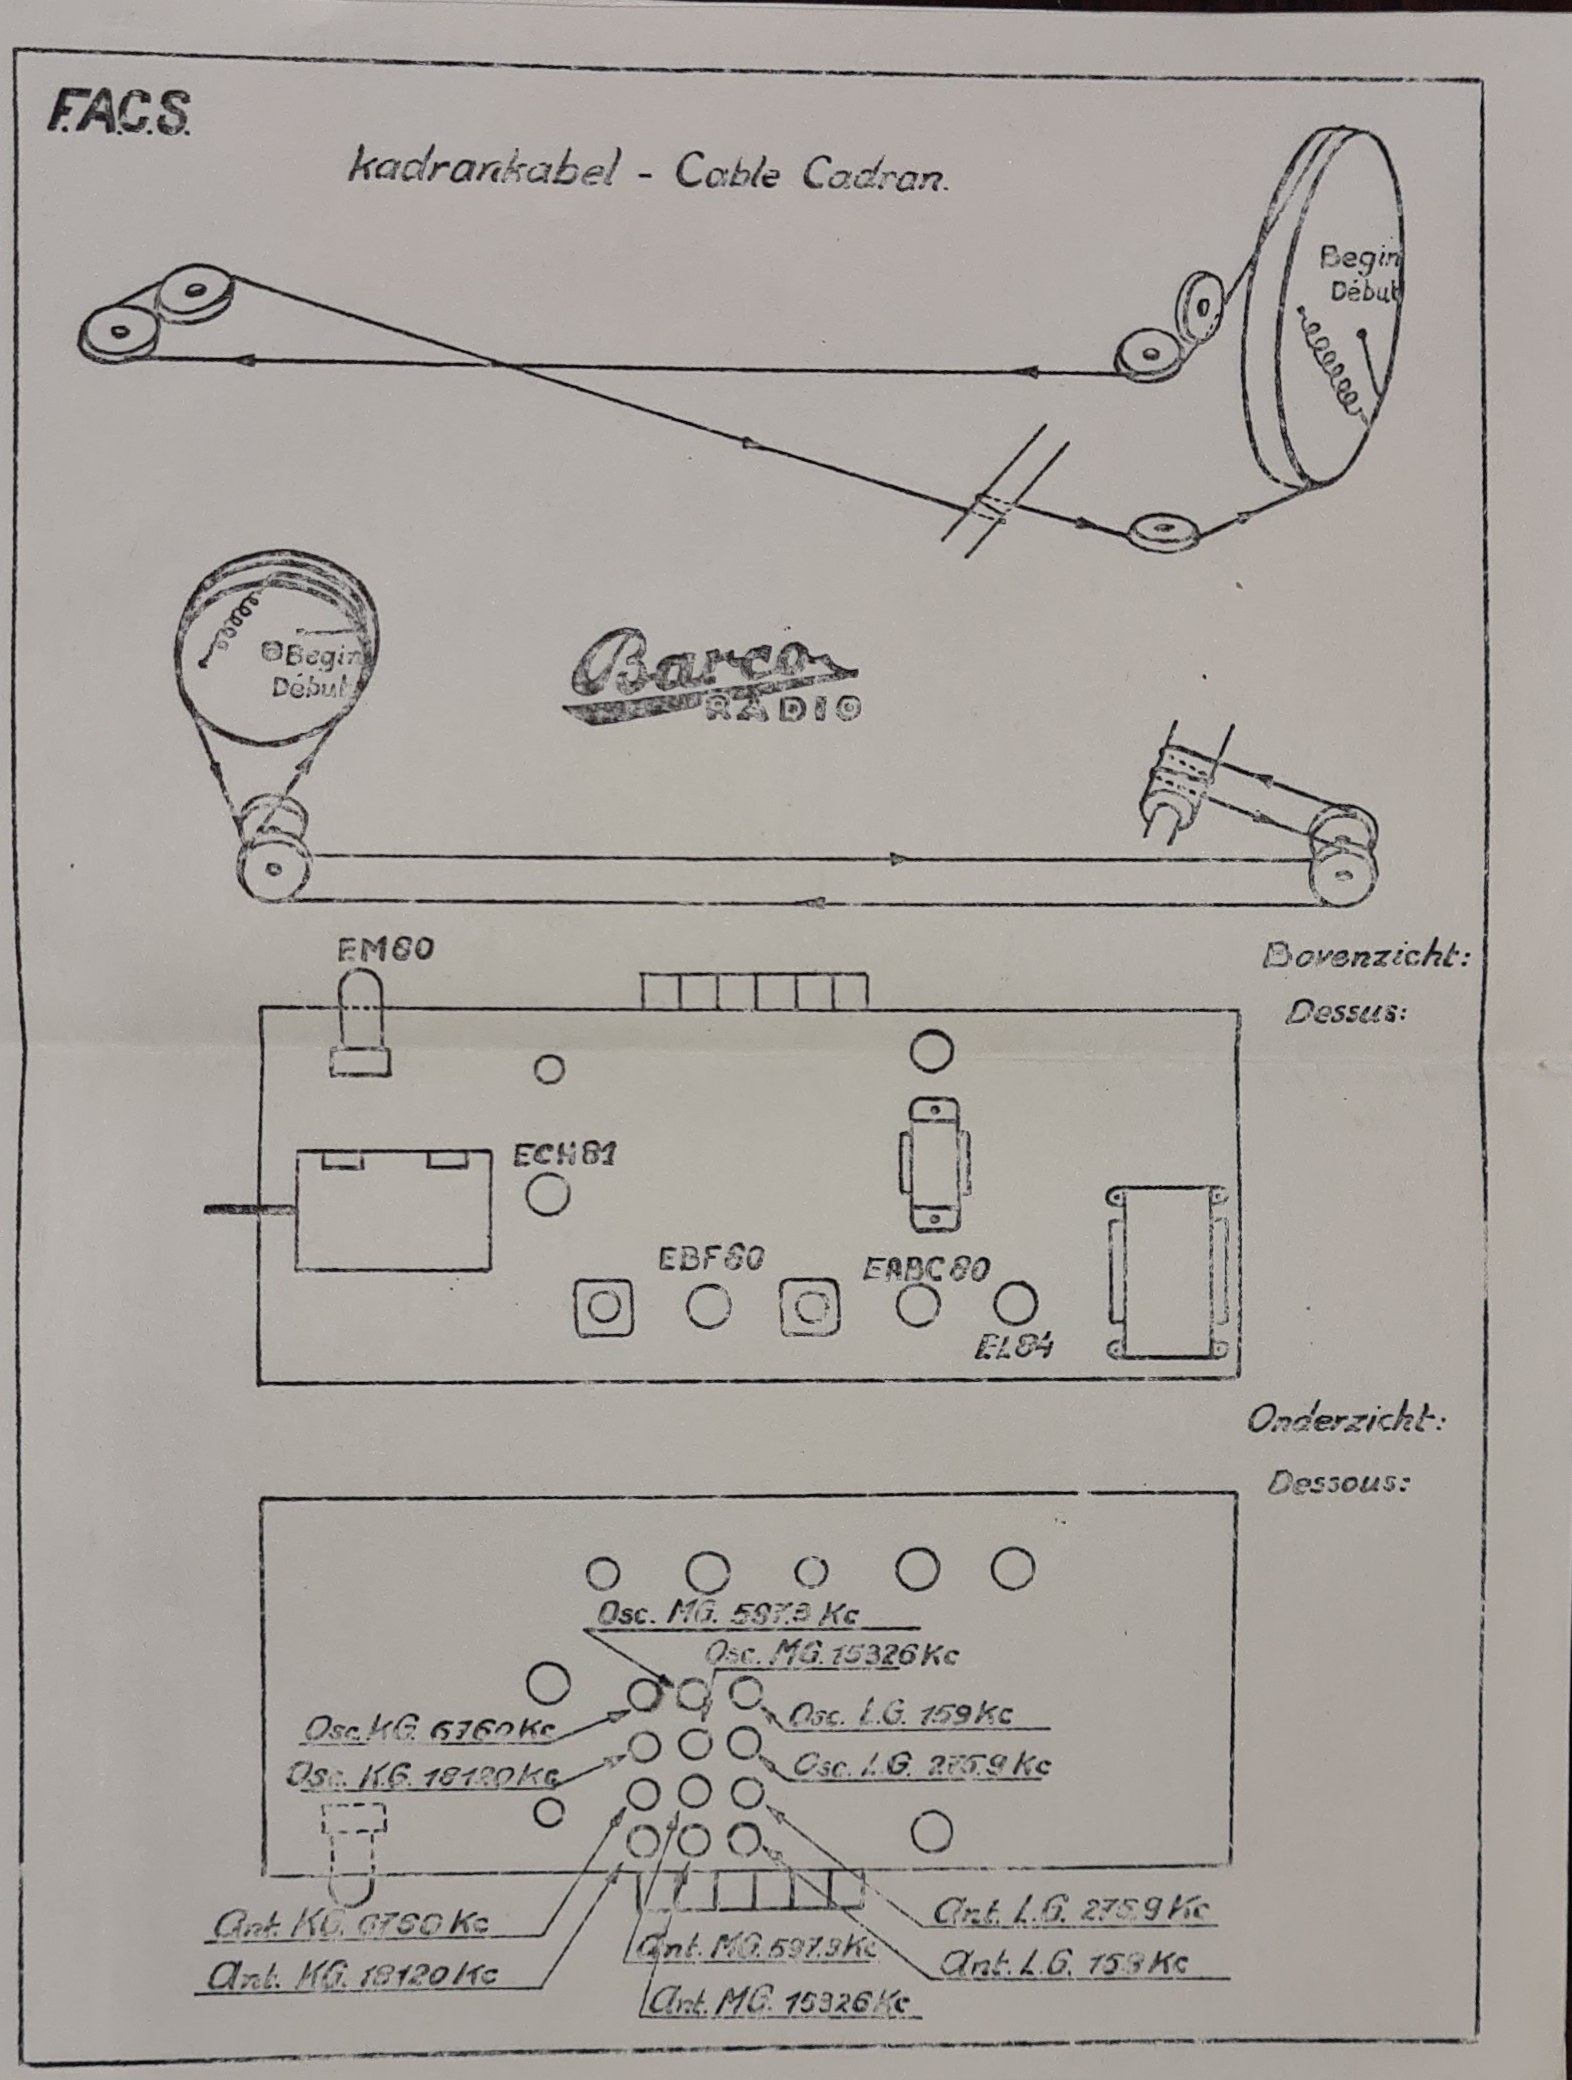 F.A.C.S.
Kadrankabel - Cable Cadran.
Begin
Début
Begin
Début
Barco
RADIO
EM80
Bovenzicht:
Dessus:
ECH81
EBF80
EABC80
EL84
Onderzicht:
Dessous:
Osc. MG. 597.9 Kc
Osc. MG. 15326 Kc
Osc. KG. 6760 Kc
Osc. L.G. 159 Kc
Osc. KG. 18120 Kc
Osc. L.G. 275.9 Kc
Ant. KG. 6760 Kc
Ant. L.G. 275.9 Kc
Ant. MG. 597.9 Kc
Ant. KG. 18120 Kc
Ant. L.G. 159 Kc
Ant. MG. 15326 Kc